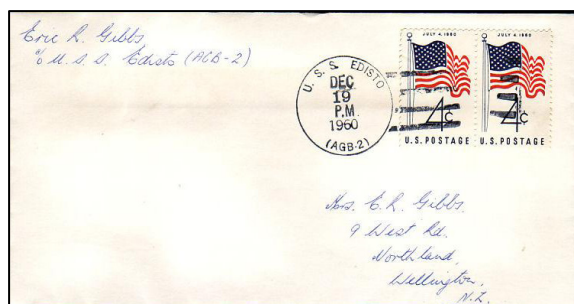 Eric R. Gibbs
c/o U.S.S. Edisto (AGB-2)
U.S.S. EDISTO
DEC
19
P.M.
1960
(AGB-2)
JULY 4, 1960
4c
U.S. POSTAGE
JULY 4, 1960
4c
U.S. POSTAGE
Mrs. E. R. Gibbs.
9 West Rd.
Northland,
Wellington,
N.Z.